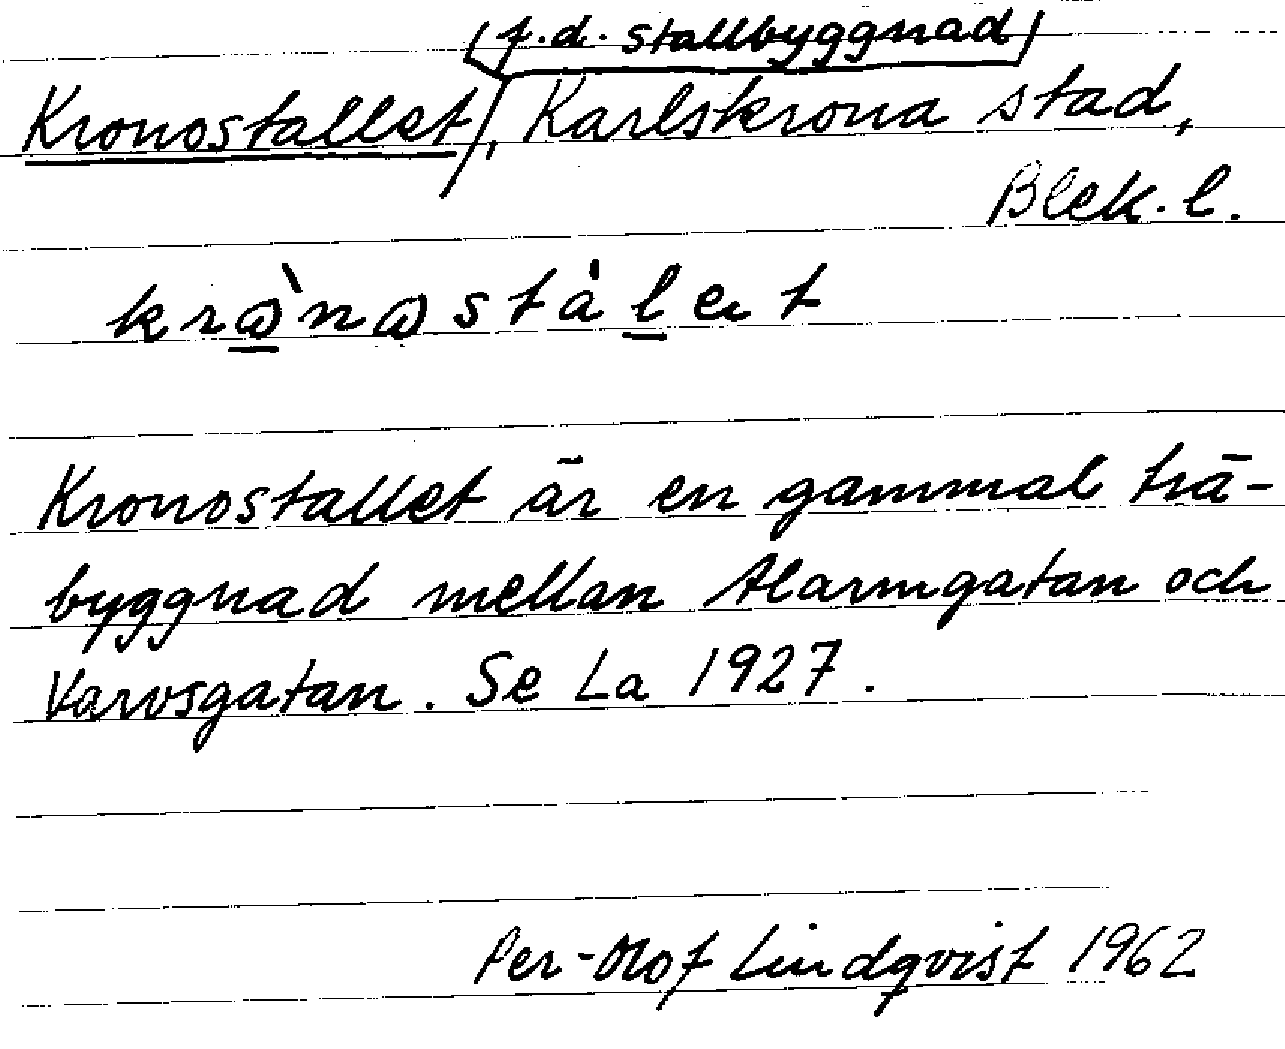 (f.d. stallbyggnad)
Kronostallet, Karlskrona stad,
Blek. l.
Kronostallet är en gammal trä-
byggnad mellan Alarmgatan och
Varvsgatan. Se La 1927.
Per-Olof Lindqvist 1962